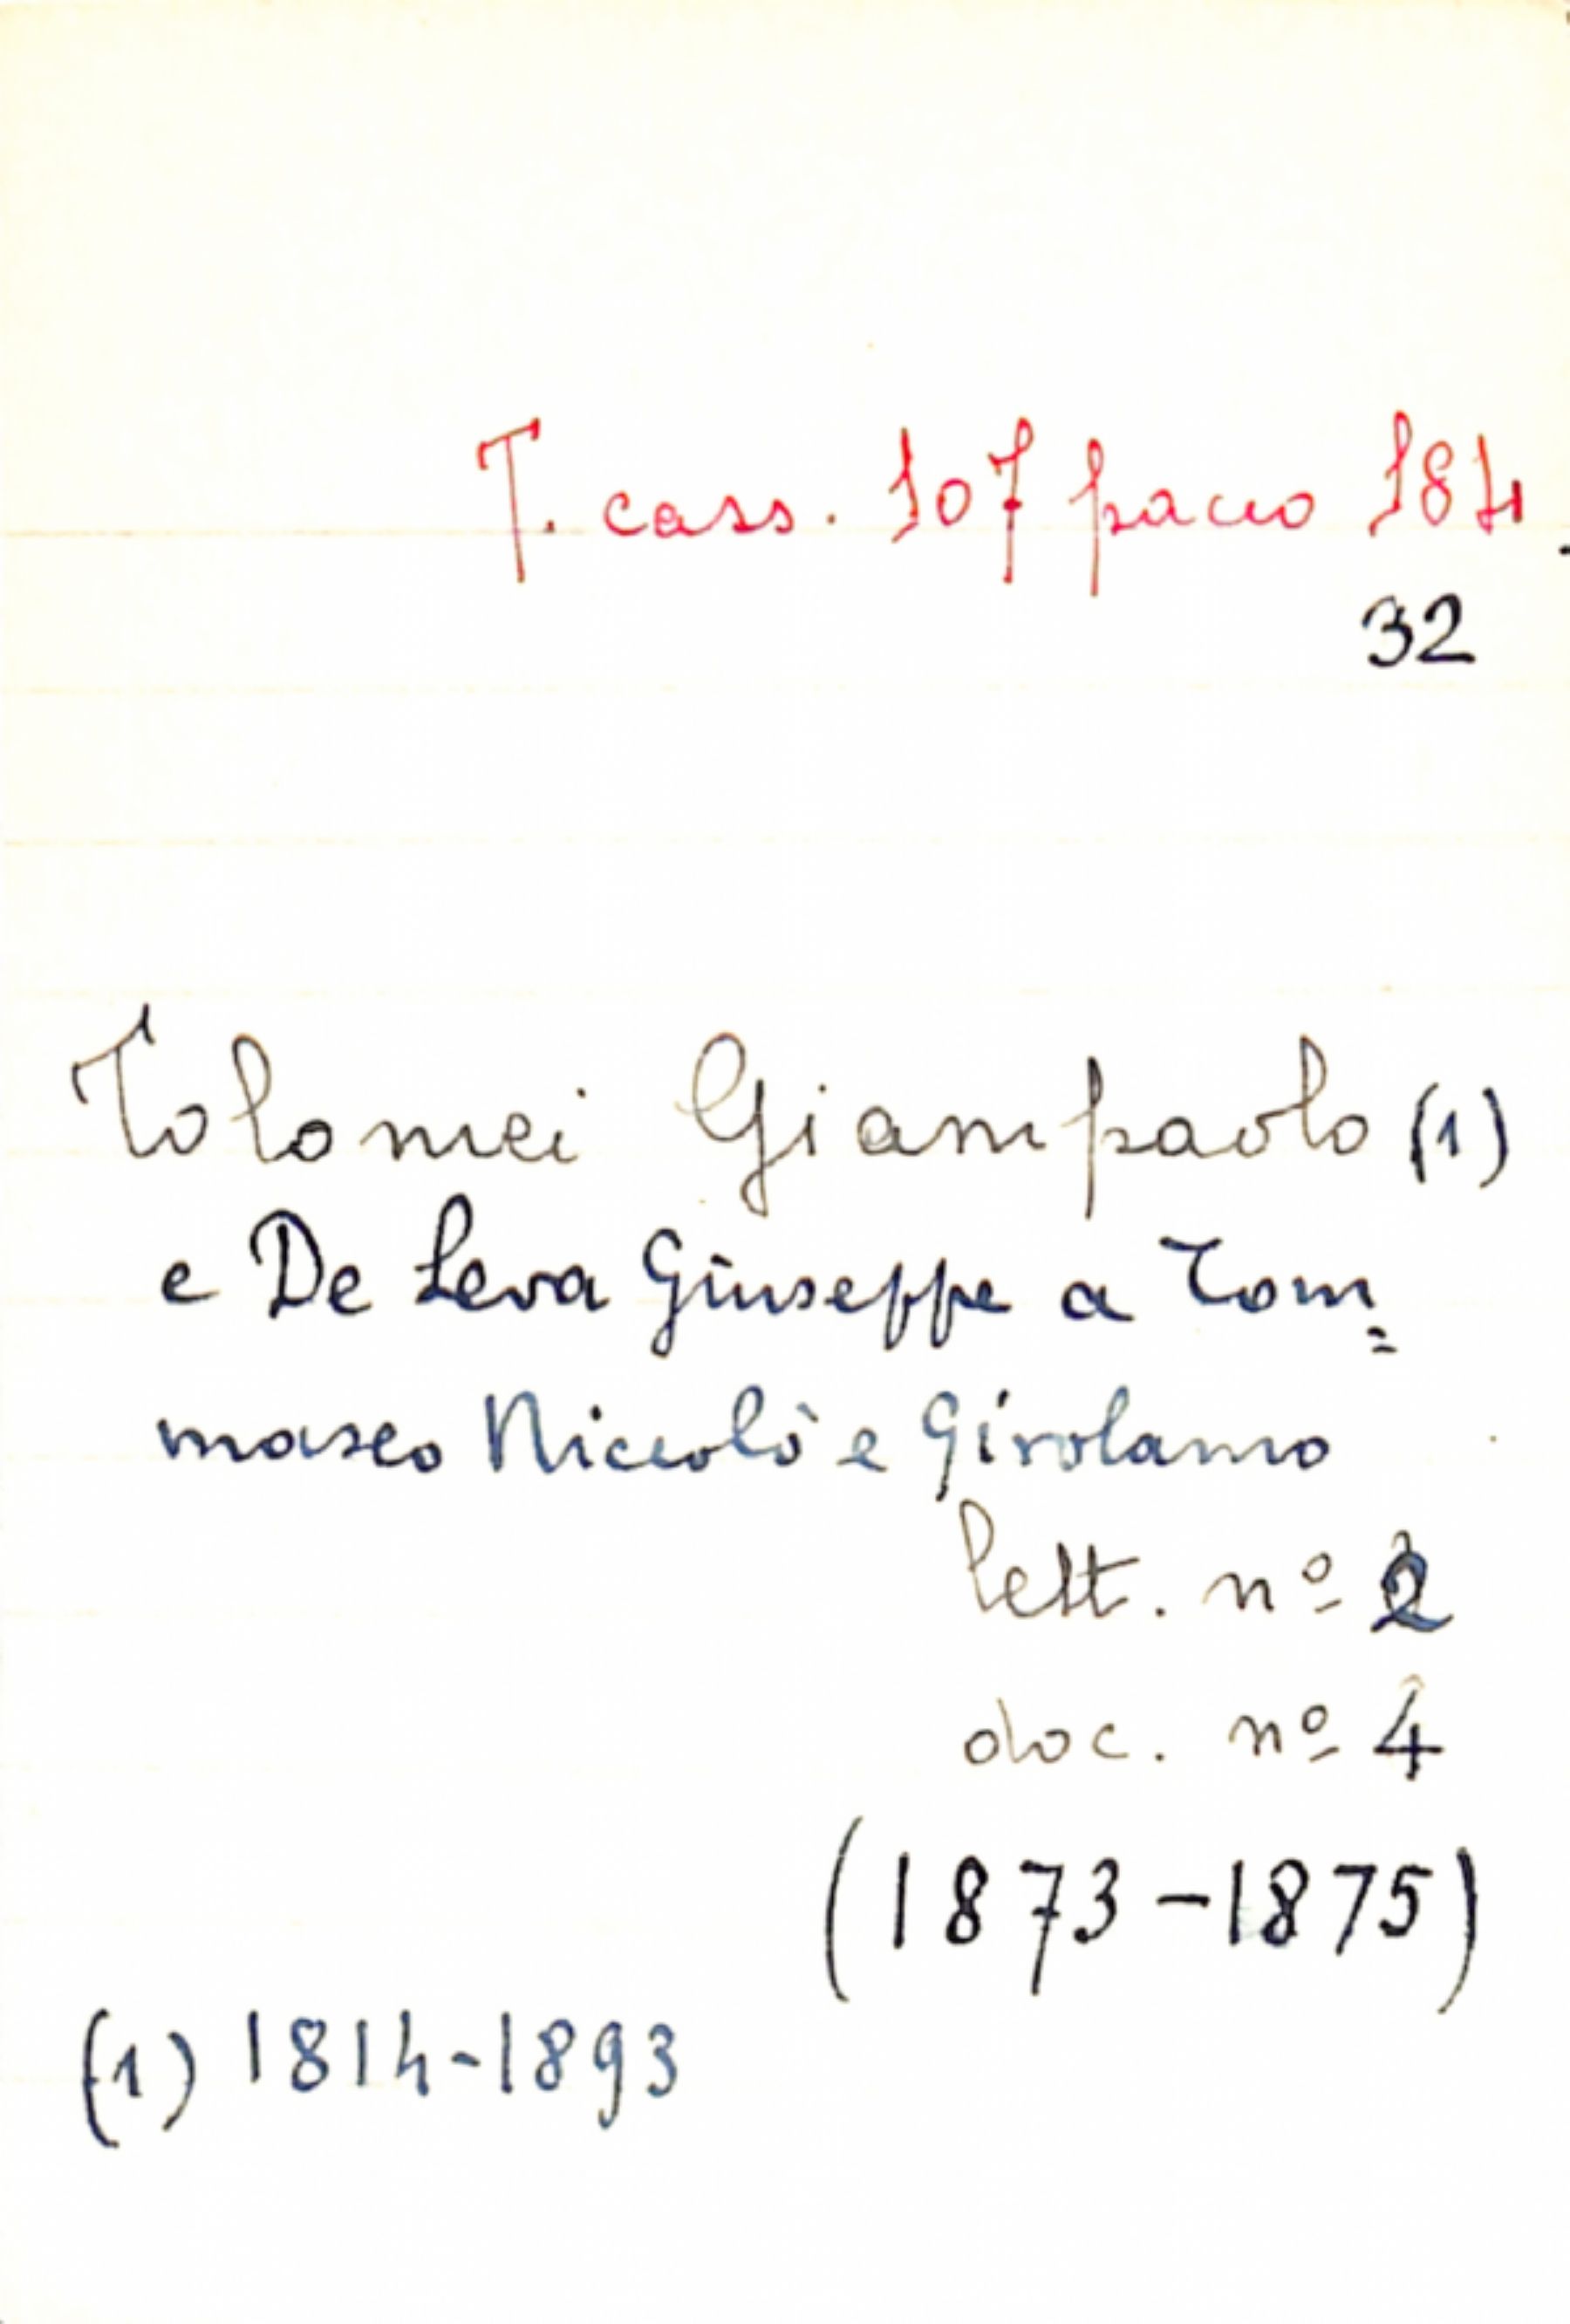 T. cass. 107 pacco 184.
32
Tolomei Giampaolo (1)
e De Leva Giuseppe a Tom=
maseo Niccolò e Girolamo
lett. nº 2
doc. nº 4
(1873-1875)
(1) 1814-1893